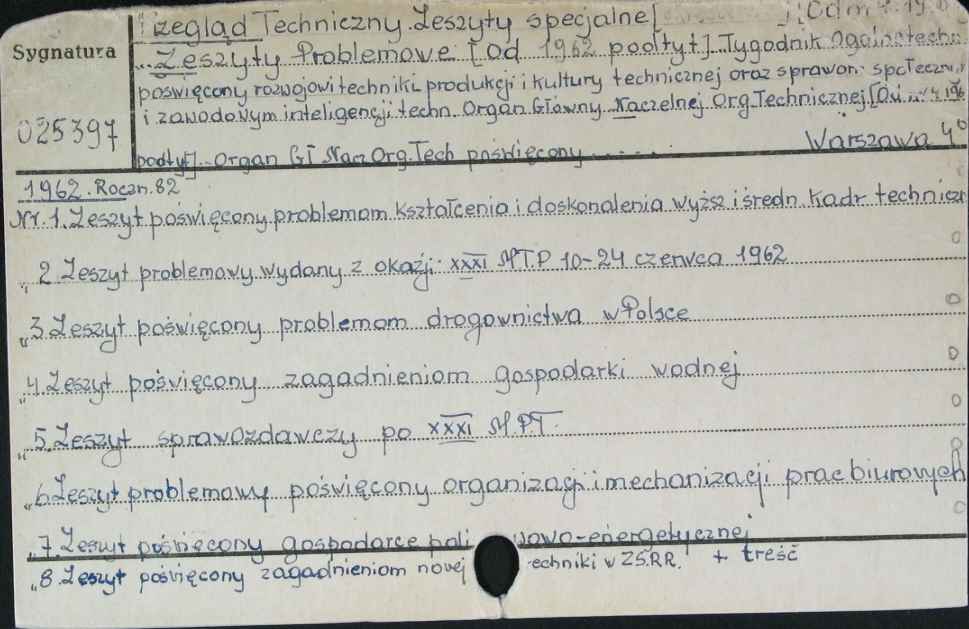 Przegląd Techniczny. Zeszyty specjalne[
Sygnatura
Zeszyty Problemowe [od 1962 podtyt]. Tygodnik ogólnotechn.
poswięcony rozwojowi techniki produkcji i kultury technicznej oraz sprawom społeczn.
i zawodowym inteligencji techn. Organ Główny Naczelnej Org. Technicznej.
025397
Warszawa 4°
podtyt]. Organ Gł Nacz Org. Tech poświęcony.....
1962. Roczn. 82
Nr. 1. Zeszyt poświęcony problemom kształcenia i doskonalenia wyższ i średn. kadr techniczn
„ 2. Zeszyt problemowy wydany z okazji XXXI MTP 10-24 czerwca 1962
„ 3. Zeszyt poświęcony problemom drogownictwa w Polsce
„ 4. Zeszyt poświęcony zagadnieniom gospodarki wodnej
„ 5. Zeszyt sprawozdawczy po XXXI M.P.T.
„ 6. Zeszyt problemowy poświęcony organizacji i mechanizacji prac biurowych
„ 7. Zeszyt poświęcony gospodarce pali wowo-energetycznej
„ 8. Zeszyt poświęcony zagadnieniom novej echniki w ZSRR. + treść